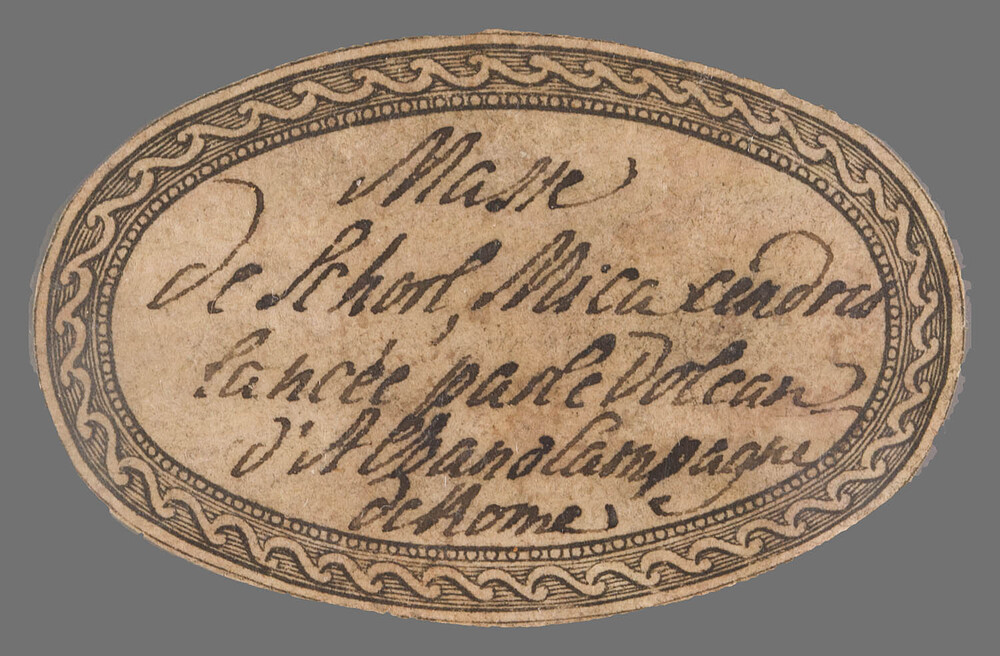 Masse
de Schorl, Mica cendres
lancée par le Volcan
d'Albano Campagne
de Rome